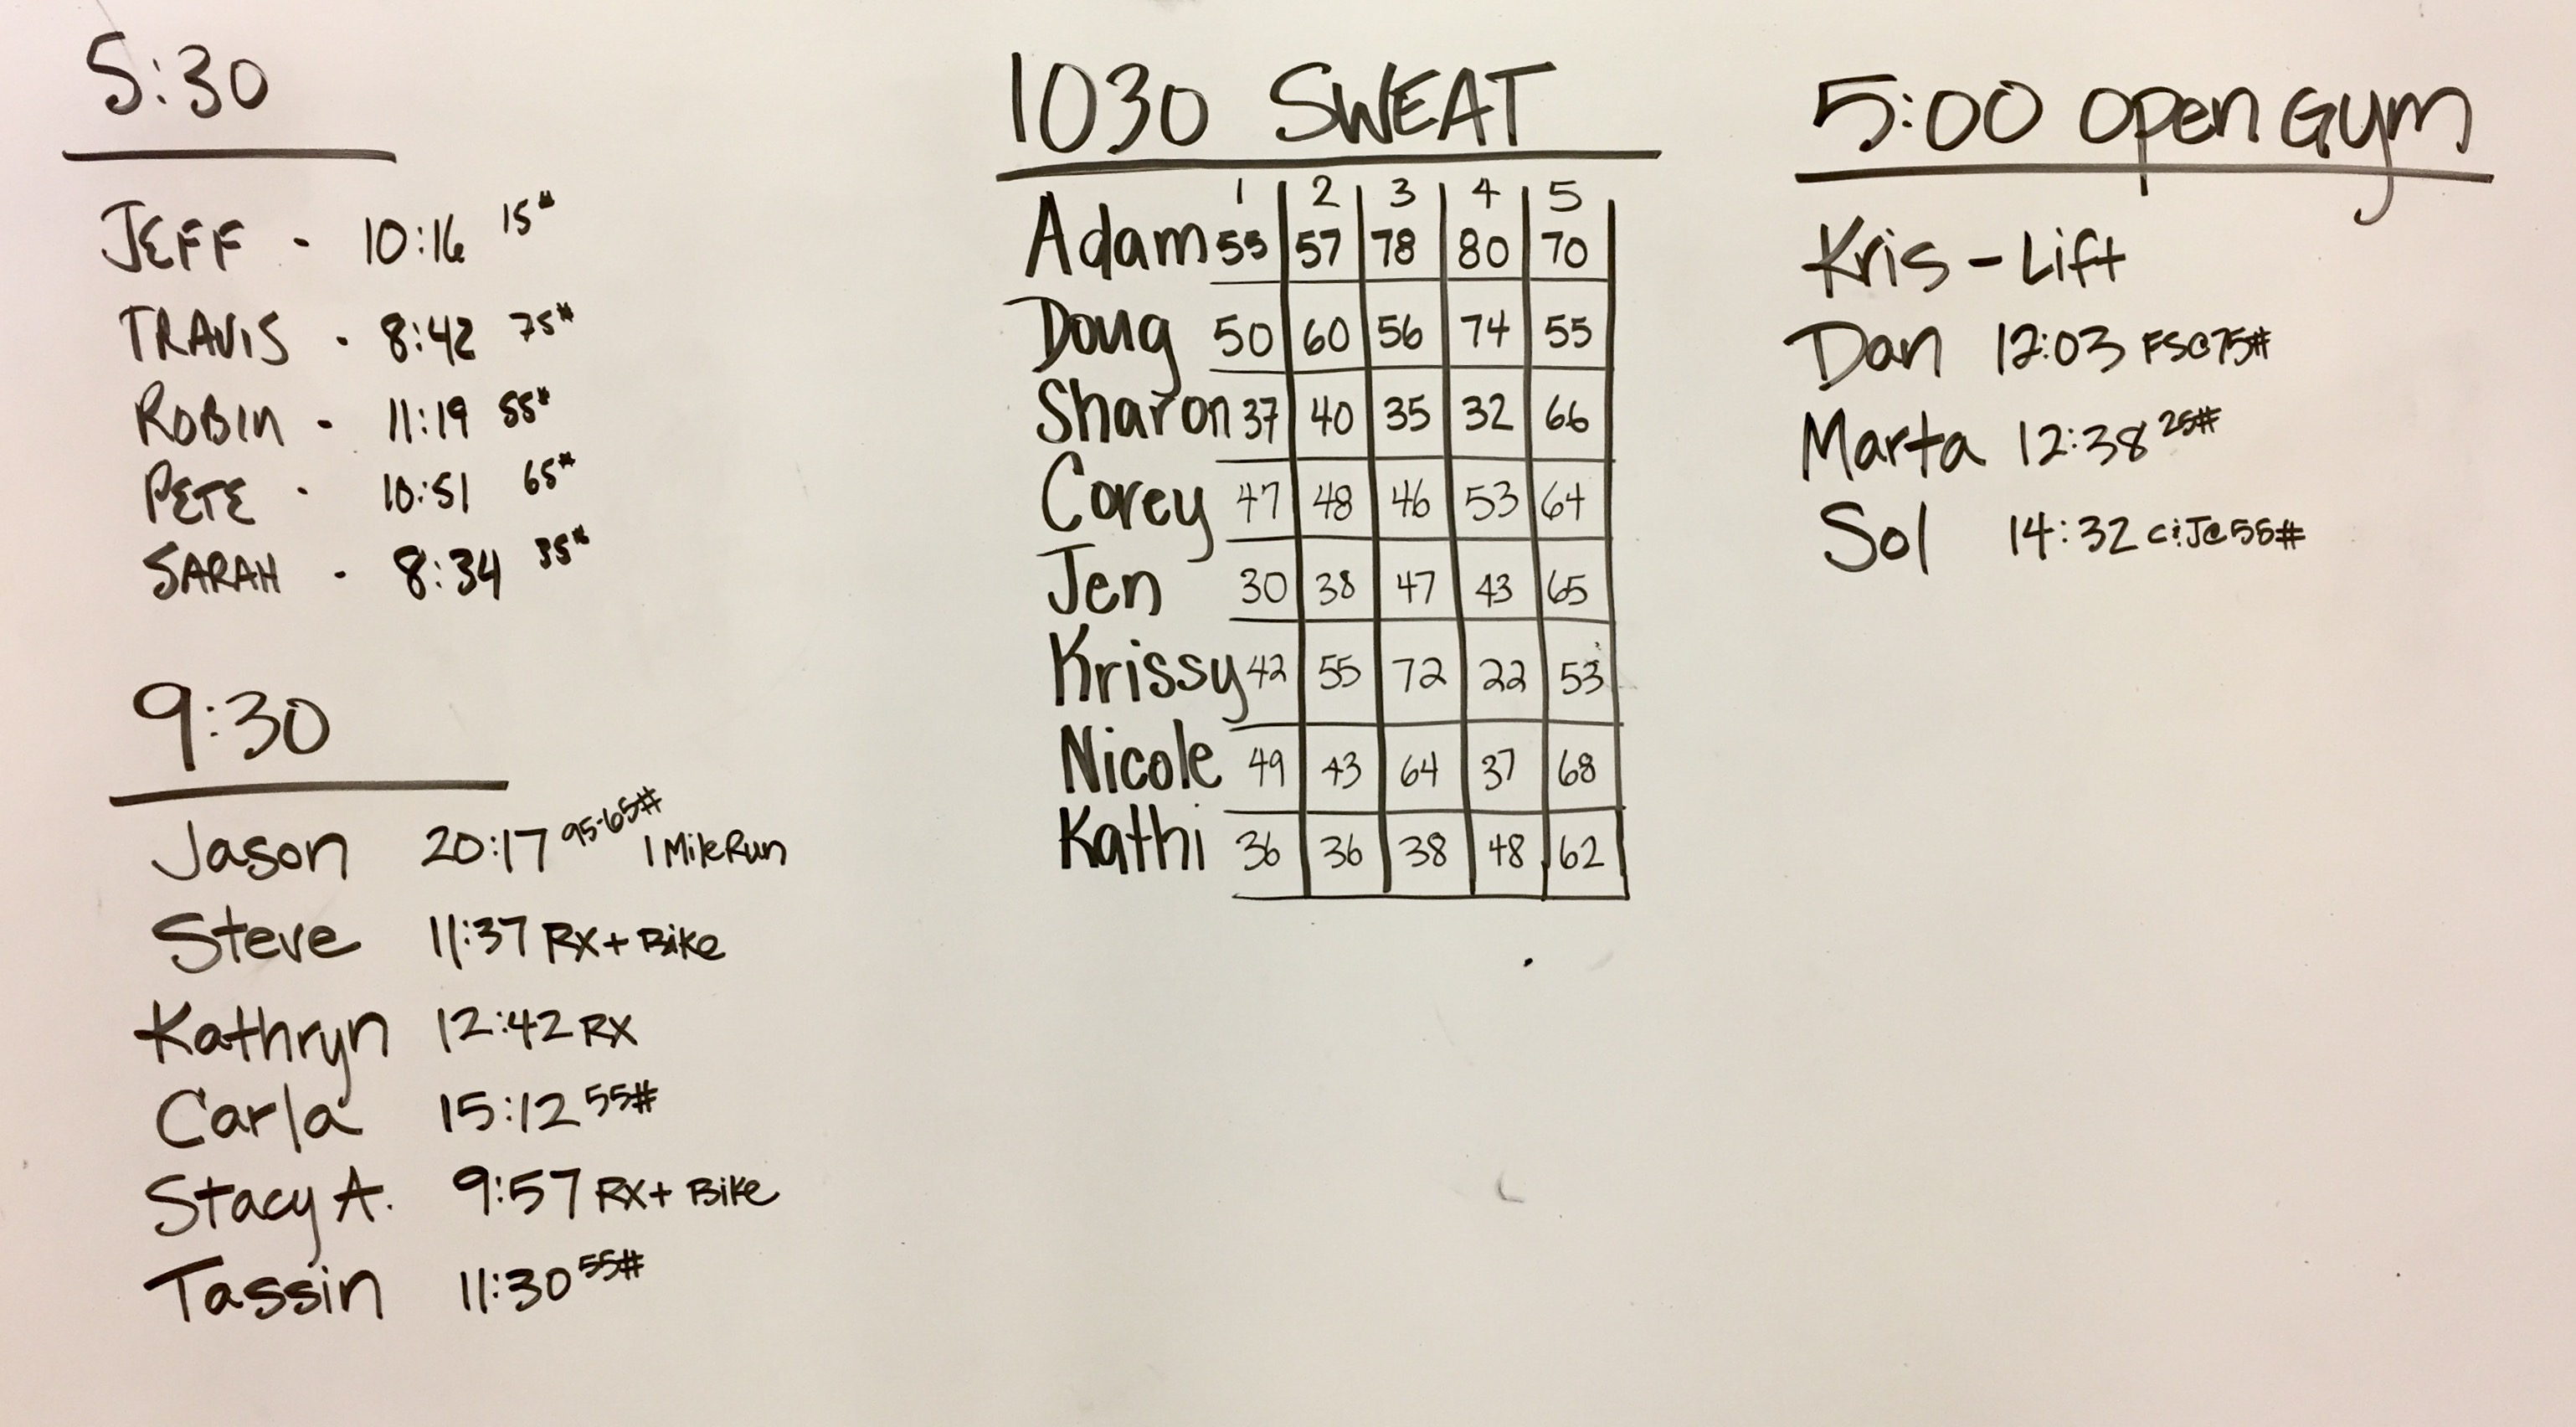 5:30
JEFF - 10:16 15#
TRAVIS - 8:42 75#
ROBIN - 11:19 55#
PETE - 10:51 65#
SARAH - 8:34 35#
9:30
Jason 20:17 95-65# 1 Mile Run
Steve 11:37 RX + Bike
Kathryn 12:42 RX
Carla 15:12 55#
Stacy A. 9:57 RX + Bike
Tassin 11:30 55#
1030 SWEAT
1 2 3 4 5
Adam 55 57 78 80 70
Doug 50 60 56 74 55
Sharon 37 40 35 32 66
Corey 47 48 46 53 64
Jen 30 38 47 43 65
Krissy 42 55 72 22 53
Nicole 49 43 64 37 68
Kathi 36 36 38 48 62
5:00 Open Gym
Kris - Lift
Dan 12:03 FS@75#
Marta 12:38 25#
Sol 14:32 C&J@55#